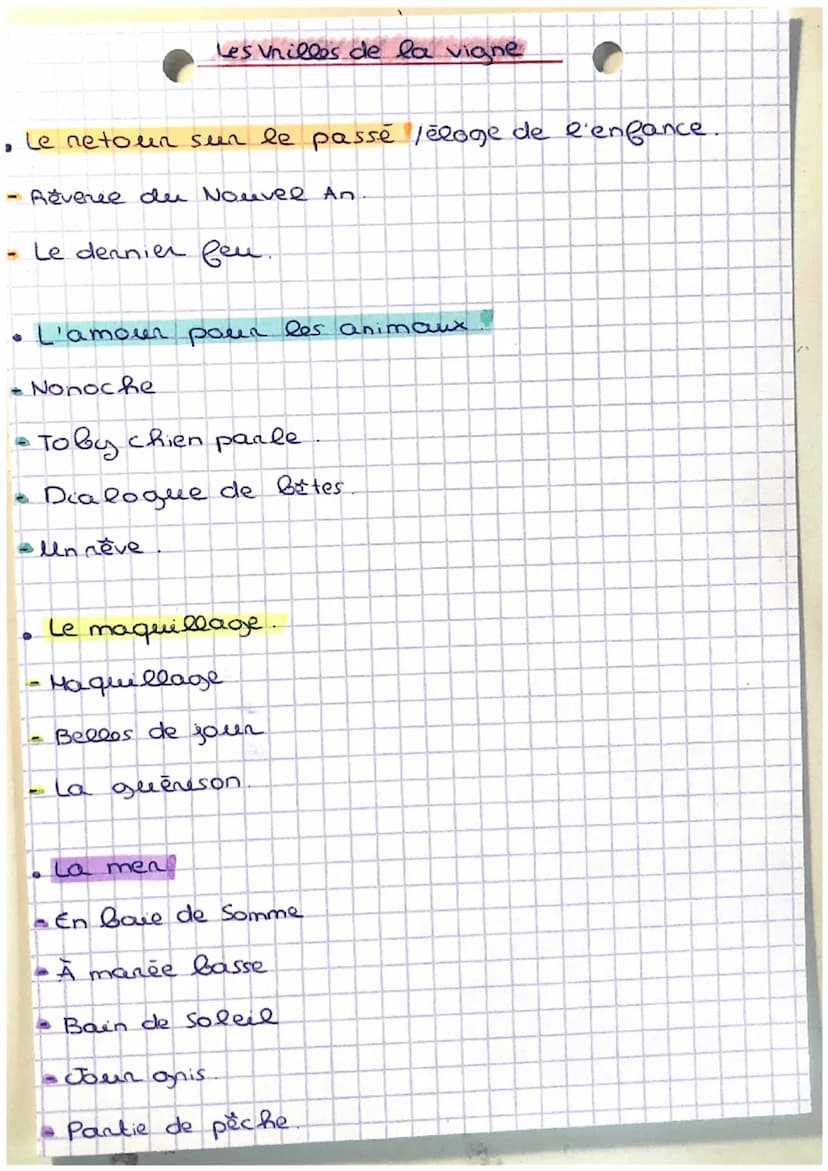 Les vrilles de la vigne
• Le retour sur le passé / éloge de l'enfance.
- Rêverie du Nouvel An.
- Le dernier feu.
• L'amour pour les animaux.
- Nonoche
- Toby chien parle.
- Dialogue de bêtes.
- Un rêve.
• Le maquillage.
- Maquillage
- Belles de jour
- La guérison.
• La mer
- En baie de Somme
- À marée basse
- Bain de soleil
- Jour gris.
- Partie de pêche.